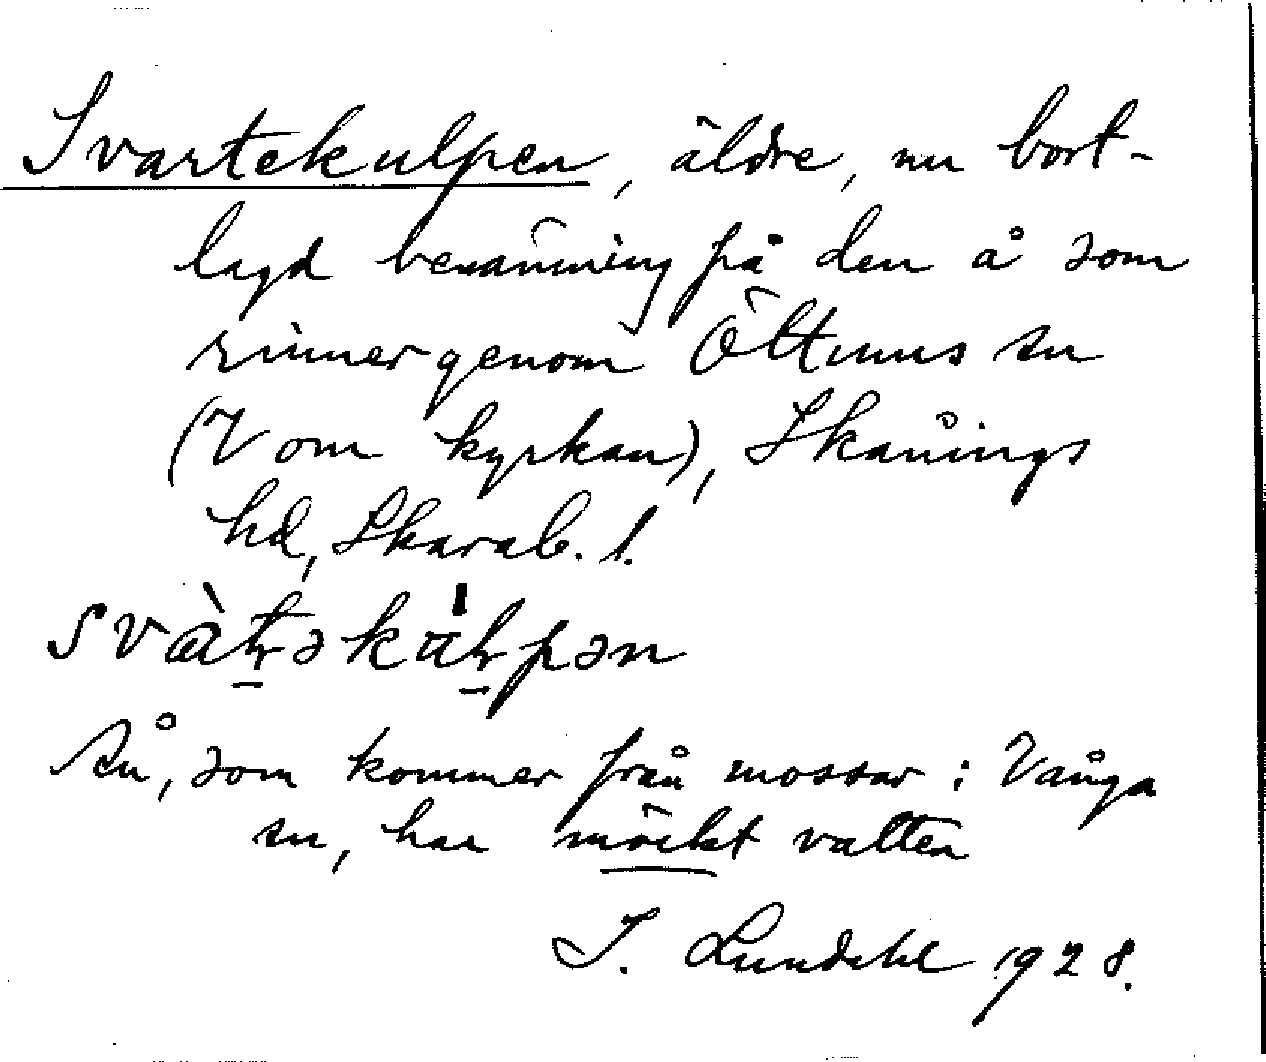 Svartekulpen, äldre, nu bort-
lagd benämning på den å som
rinner genom Öttums sn
(V om kyrkan), Skånings
hd, Skarab. l.
Ån, som kommer från mossar i Vånga
sn, har mörkt vatten
I. Lundahl 1928.